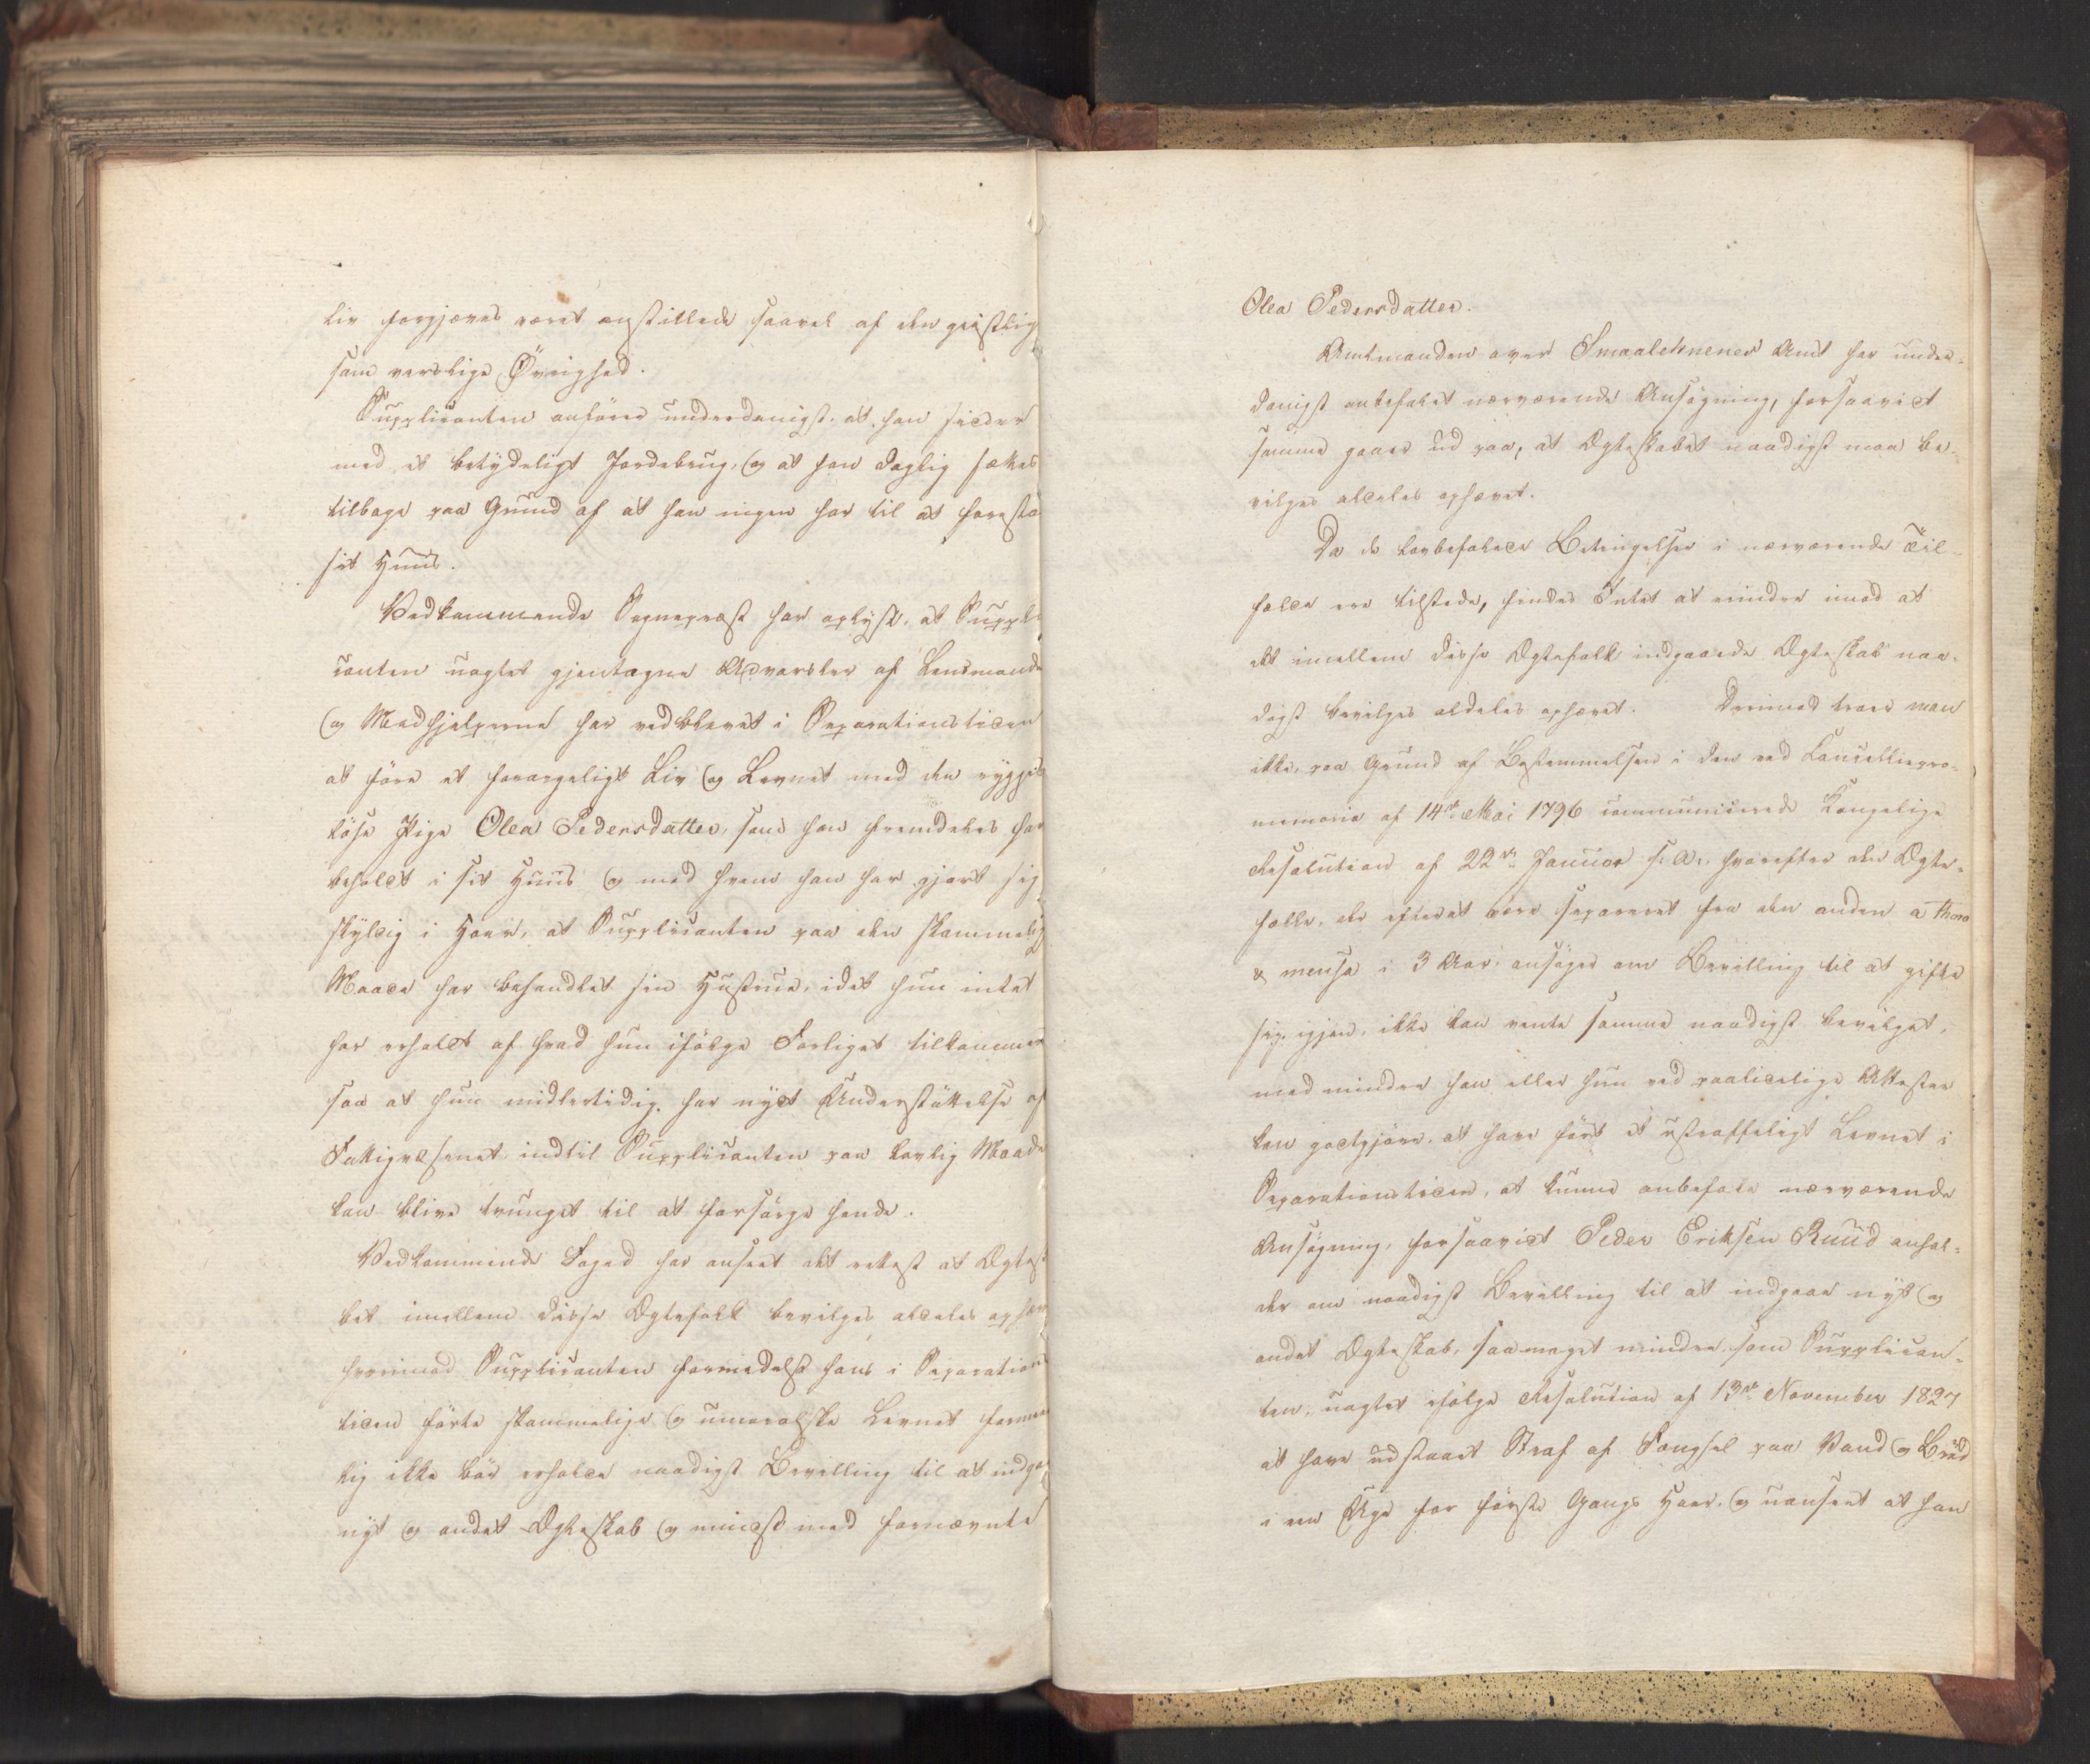 liv forgjæves været anstillede saavel af den geistlig
som verslige Øvrighed.
Supplicanten anfører underdanigst, at han sidder
med et betydeligt Jordebrug, og at han daglig sættes
tilbage paa Grund af at han ingen har til at forestå
sit Huus.
Vedkommende Sognepræst har oplyst, at Suppli
canten uagtet gjentagne Advarsler af Lensmande
og Medhjelperne har vedblevet i Separationstiden
at føre et forargeligt Liv og Levnet med den ryggес
løse Pige Olea Pedersdatter, som han fremdeles har
beholdt i sit Huus og med hvem han har gjort sig
skyldig i Hoer, at Supplicanten paa den skammelig
Maade har behandlet sin Hustrue, idet hun intet
har erholdt af hvad hun ifølge Forliget tilkommer
saa at hun midlertidig har nydt Understøttelse af
Fattigvæsenet indtil Supplicanten paa lovlig Maade
kan blive tvunget til at forsørge hende.
Vedkommende Foged har anseet det rettest at Ægtesk
bet imellem disse Ægtefolk bevilges aldeles ophæv
hvorimod Supplicanten formedelst hans i Separations
tiden førte skammelige og umoralske Levnet formeent
lig ikke bør erholde naadigst Bevilling til at indgaa
nyt og andet Ægteskab og mindst med fornævnte
Olea Pedersdatter.
Amtmanden over Smaalehnenes Amt har under-
danigst anbefalet nærværende Ansøgning, forsaavidt
samme gaaer ud paa, at Ægteskabet naadigst maa be-
vilges aldeles ophævet.
Da de lovbefalede Betingelser i nærværende Til-
fælde ere tilstede, findes Intet at erindre imod at
det imellem disse Ægtefolk indgaaede Ægteskab naa-
digst bevilges aldeles ophævet. Derimod troer man
ikke, paa Grund af Bestemmelsen i den ved Cancelliepro-
memoria af 14de Mai 1796 communicerede Kongelige
Resolution af 22de Januar s: A:, hvorefter den Ægte-
fælle, der efterat være separeret fra den anden a thoro
& mensa i 3 Aar, ansøger om Bevilling til at gifte
sig igjen, ikke kan vente samme naadigst bevilget,
med mindre han eller hun ved paalidelige Attester
kan godtgjøre, at have ført et ustraffeligt Levnet i
Separationstiden, at kunne anbefale nærværende
Ansøgning, forsaavidt Peder Eriksen Ruud anhol-
der om naadigst Bevilling til at indgaae nyt og
andet Ægteskab, saameget mindre som Supplican-
ten, uagtet ifølge Resolution af 13de November 1827
at have udstaaet Straf af Fængsel paa Vand og Brød
i en Uge for første Gangs Hoer, og uanseet at han